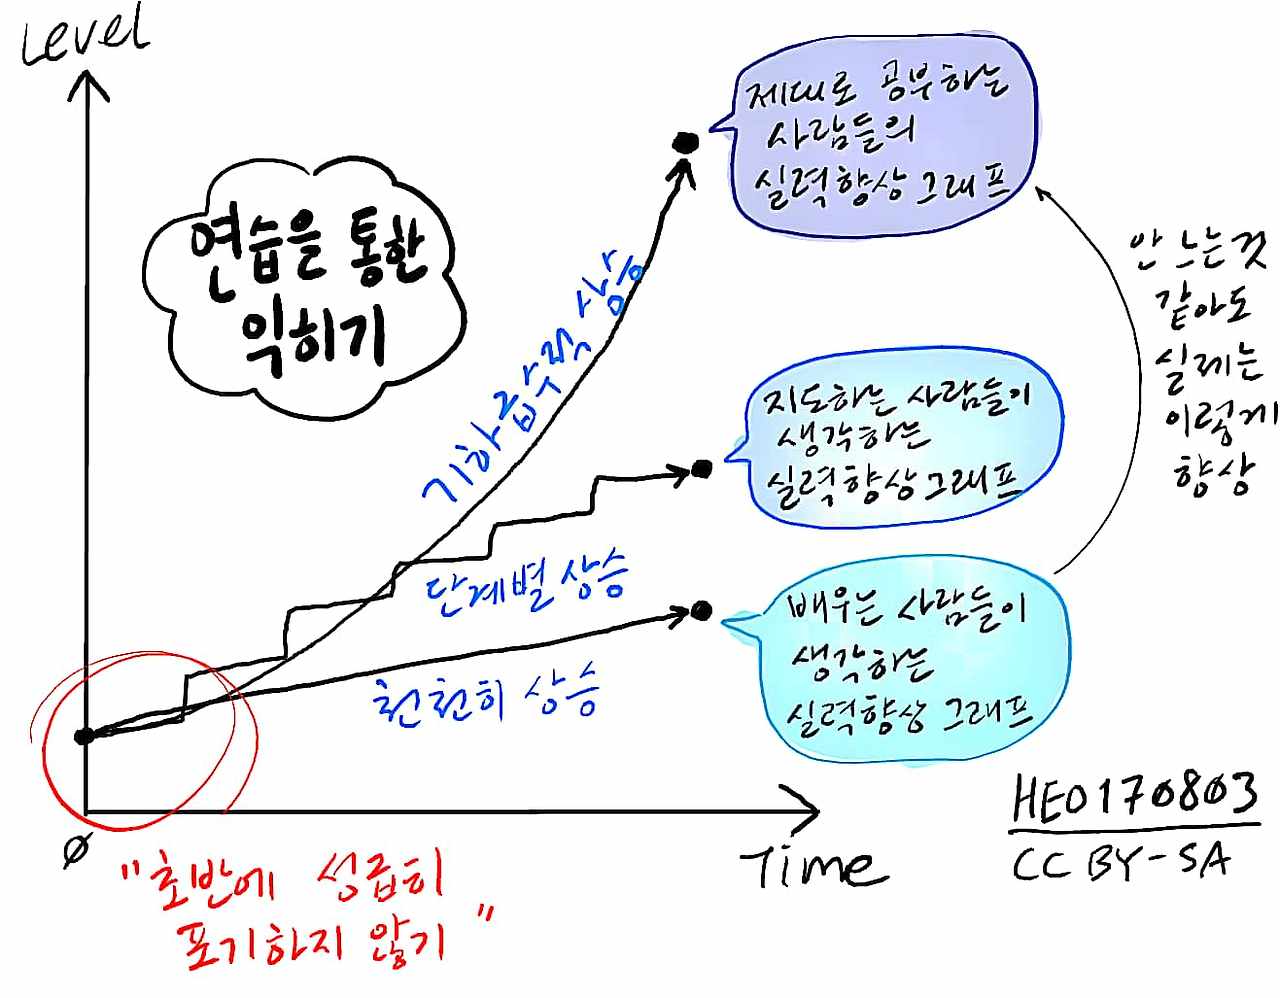 Level
연습을 통한
익히기
제대로 공부하는
사람들의
실력향상그래프
기하급수적 상승
안 느는것
같아도
실제는
이렇게
향상
지도하는 사람들이
생각하는
실력향상그래프
단계별 상승
배우는 사람들이
생각하는
실력향상 그래프
천천히 상승
Ø
Time
"초반에 성급히
포기하지 않기"
HEO170803
CC BY-SA